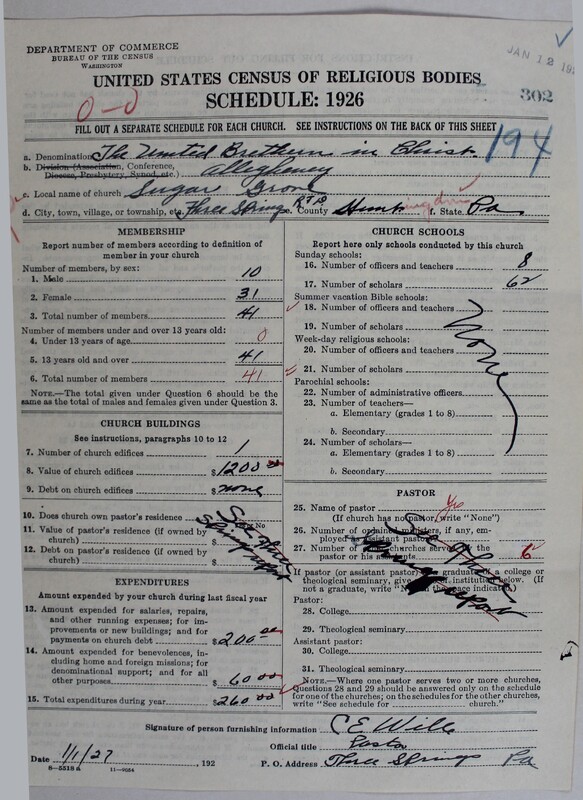 DEPARTMENT OF COMMERCE
BUREAU OF THE CENSUS
WASHINGTON
JAN 12 19
UNITED STATES CENSUS OF RELIGIOUS BODIES
SCHEDULE: 1926
302
0-0
FILL OUT A SEPARATE SCHEDULE FOR EACH CHURCH. SEE INSTRUCTIONS ON THE BACK OF THIS SHEET
194
a. Denomination The United Brethern in Christ
b. Division (Association, Conference, Diocese, Presbytery, Synod, etc.) Allegheney
c. Local name of church Sugar Grove
d. City, town, village, or township, etc. Three Springs e. County Huntingdon f. State Pa.
MEMBERSHIP
Report number of members according to definition of member in your church
Number of members, by sex:
1. Male 10
2. Female 31
3. Total number of members 41
Number of members under and over 13 years old:
4. Under 13 years of age 0
5. 13 years old and over 41
6. Total number of members 41
NOTE.—The total given under Question 6 should be the same as the total of males and females given under Question 3.
CHURCH BUILDINGS
See instructions, paragraphs 10 to 12
7. Number of church edifices 1
8. Value of church edifices $1200 00
9. Debt on church edifices $none
10. Does church own pastor's residence No
11. Value of pastor's residence (if owned by church) $
12. Debt on pastor's residence (if owned by church) $
EXPENDITURES
Amount expended by your church during last fiscal year
13. Amount expended for salaries, repairs, and other running expenses; for improvements or new buildings; and for payments on church debt $200 00
14. Amount expended for benevolences, including home and foreign missions; for denominational support; and for all other purposes $60 00
15. Total expenditures during year $260 00
CHURCH SCHOOLS
Report here only schools conducted by this church
Sunday schools:
16. Number of officers and teachers 8
17. Number of scholars 62
Summer vacation Bible schools:
18. Number of officers and teachers
19. Number of scholars
None
Week-day religious schools:
20. Number of officers and teachers
21. Number of scholars
Parochial schools:
22. Number of administrative officers
23. Number of teachers—
a. Elementary (grades 1 to 8)
b. Secondary
24. Number of scholars—
a. Elementary (grades 1 to 8)
b. Secondary
PASTOR
25. Name of pastor Yes
(If church has no pastor, write "None")
26. Number of ordained ministers, if any, employed as assistant pastors
27. Number of churches served by the pastor or his assistants 6
If pastor (or assistant pastor) is a graduate of a college or theological seminary, give name of institution below. (If not a graduate, write "None" in the space indicated.)
Pastor:
28. College
29. Theological seminary
Assistant pastor:
30. College
31. Theological seminary
NOTE.—Where one pastor serves two or more churches, Questions 28 and 29 should be answered only on the schedule for one of the churches; on the schedules for the other churches, write "See schedule for church."
Signature of person furnishing information C E Wills
Official title Pastor
Date 1/1/27, 192 P. O. Address Three Springs Pa
8—5518 a 11—9054